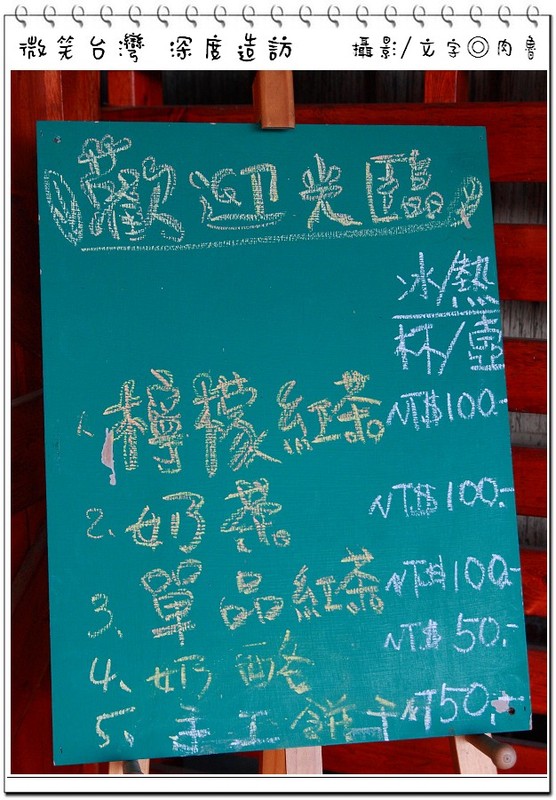 微笑台灣 深度造訪 攝影/文字◎肉魯
歡迎光臨
冰/熱
杯/壺
1. 檸檬紅茶 NT$100.-
2. 奶茶 NT$100.-
3. 單品紅茶 NT$100.-
4、奶酪 NT$50.-
5、手工餅干 NT50.-